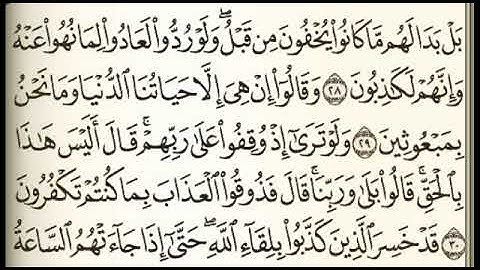 بَلۡ بَدَا لَهُم مَّا كَانُوا۟ يُخۡفُونَ مِن قَبۡلُۖ وَلَوۡ رُدُّوا۟ لَعَادُوا۟ لِمَا نُهُوا۟ عَنۡهُ
وَإِنَّهُمۡ لَكَـٰذِبُونَ ٢٨ وَقَالُوٓا۟ إِنۡ هِىَ إِلَّا حَيَاتُنَا ٱلدُّنۡيَا وَمَا نَحۡنُ
بِمَبۡعُوثِينَ ٢٩ وَلَوۡ تَرَىٰٓ إِذۡ وُقِفُوا۟ عَلَىٰ رَبِّهِمۡۚ قَالَ أَلَيۡسَ هَـٰذَا
بِٱلۡحَقِّۚ قَالُوا۟ بَلَىٰ وَرَبِّنَاۚ قَالَ فَذُوقُوا۟ ٱلۡعَذَابَ بِمَا كُنتُمۡ تَكۡفُرُونَ
٣٠ قَدۡ خَسِرَ ٱلَّذِينَ كَذَّبُوا۟ بِلِقَآءِ ٱللَّهِۖ حَتَّىٰٓ إِذَا جَآءَتۡهُمُ ٱلسَّاعَةُ